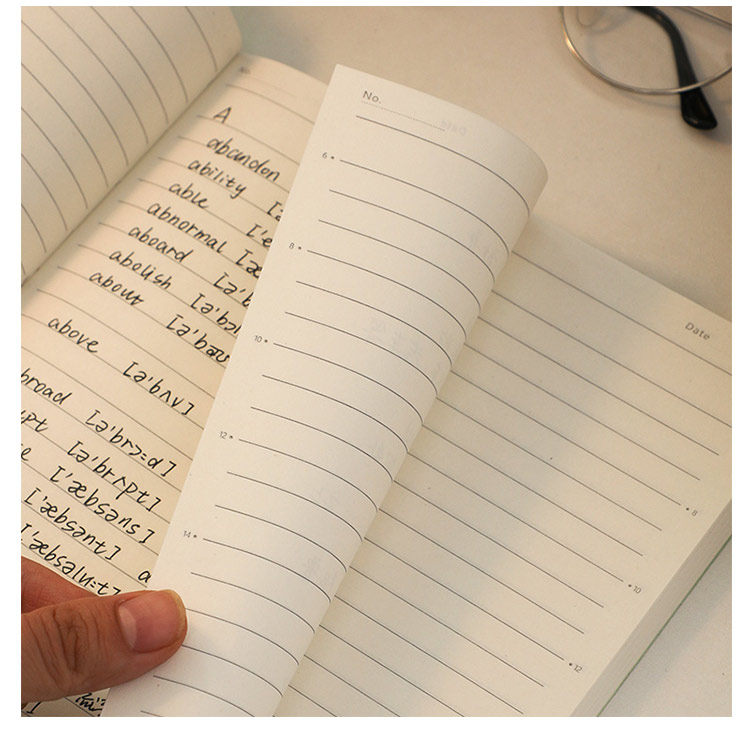 A
abandon
ability
able
abnormal
aboard
abolish
about [ə'baʊ
above [ə'bʌv]
broad [ə'brɔ=d]
pt [ə'brʌpt]
['æbsəns]
['æbsənt] a
['æbsəlu=t]
No.
6
8
10
12
14
Date
8
10
12